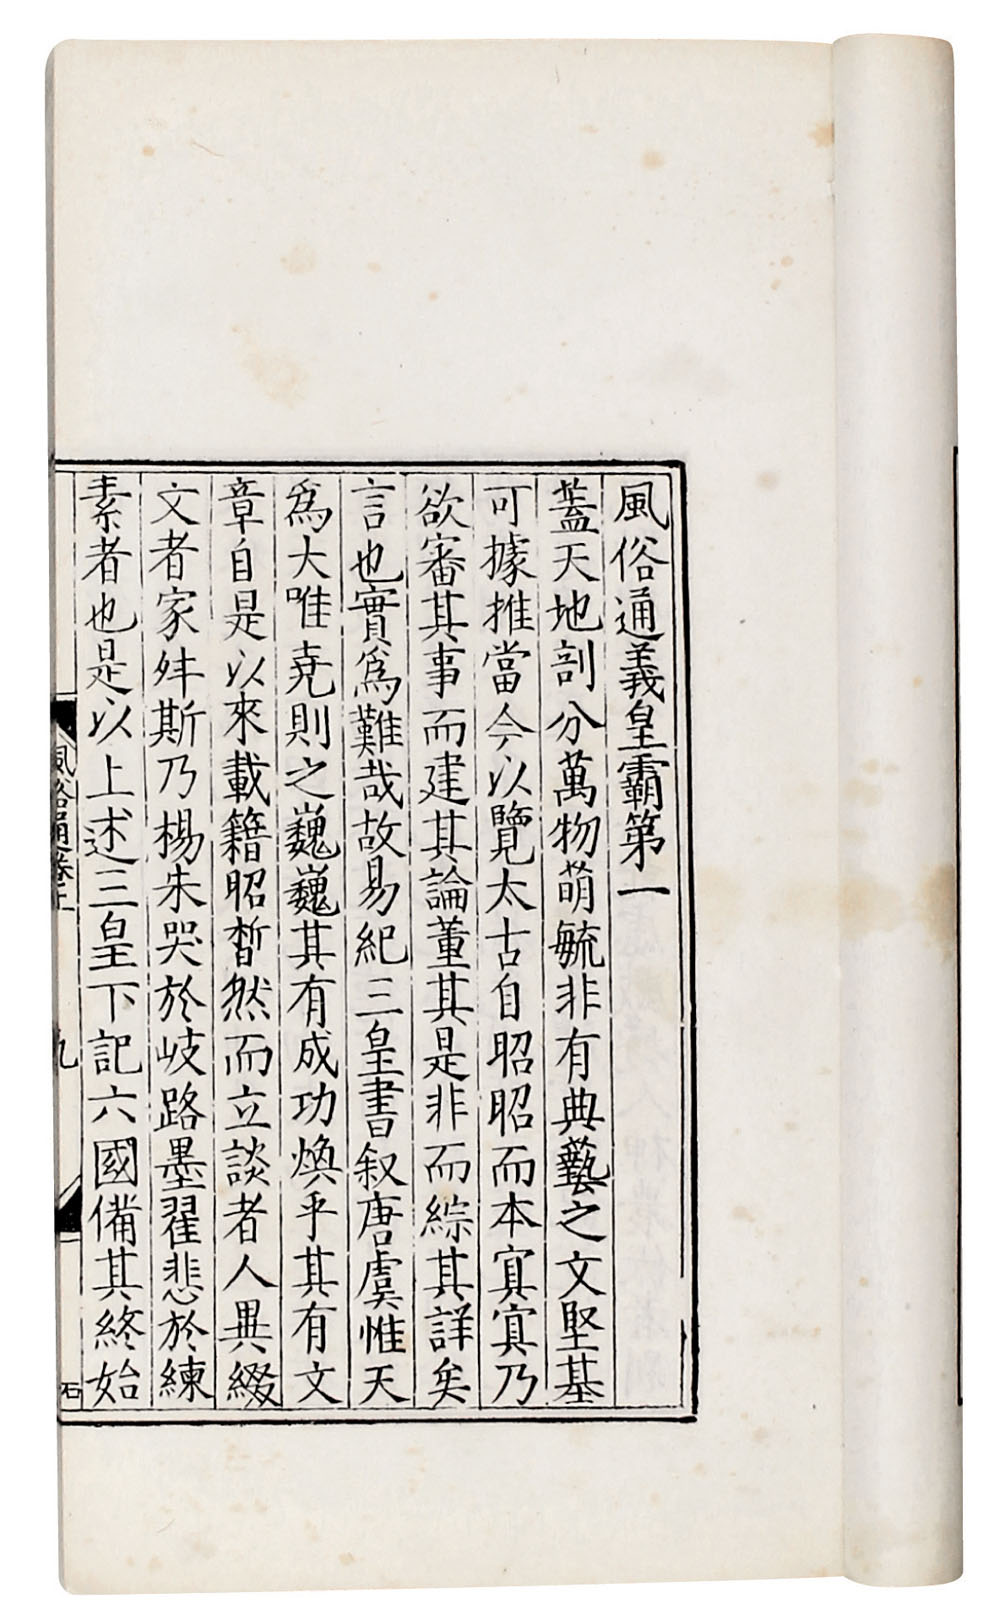 風俗通義皇霸第一
蓋天地剖分萬物萌毓非有典藝之文堅基
可據推當今以覽太古自昭昭而本㝠㝠乃
欲審其事而建其論董其是非而綜其詳矣
言也實為難哉故易紀三皇書叙唐虞惟天
為大唯堯則之巍巍其有成功煥乎其有文
章自是以來載籍昭晳然而立談者人異綴
文者家舛斯乃楊朱哭於岐路墨翟悲於練
素者也是以上述三皇下記六國備其終始
風俗通卷上
九